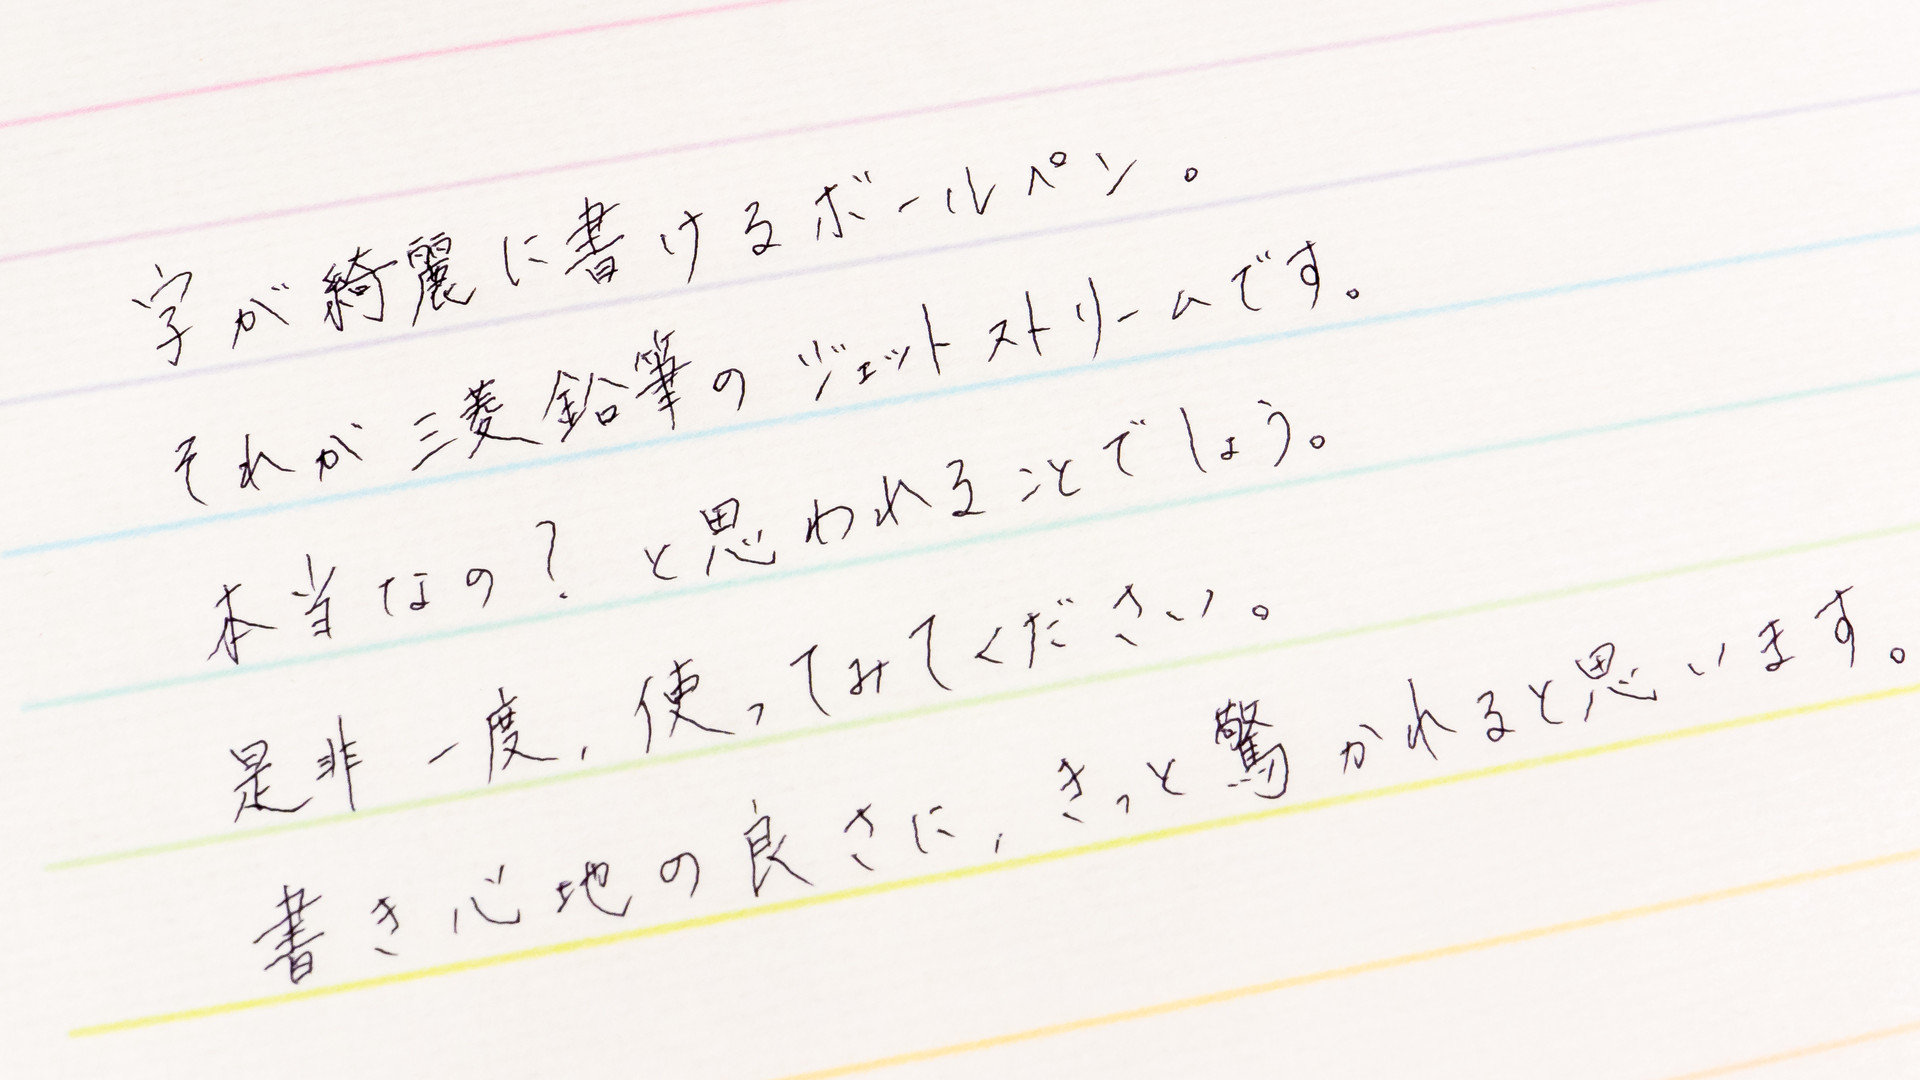 字が綺麗に書けるボールペン。
それが三菱鉛筆のジェットストリームです。
本当なの？と思われることでしょう。
是非一度、使ってみてください。
書き心地の良さに、きっと驚かれると思います。